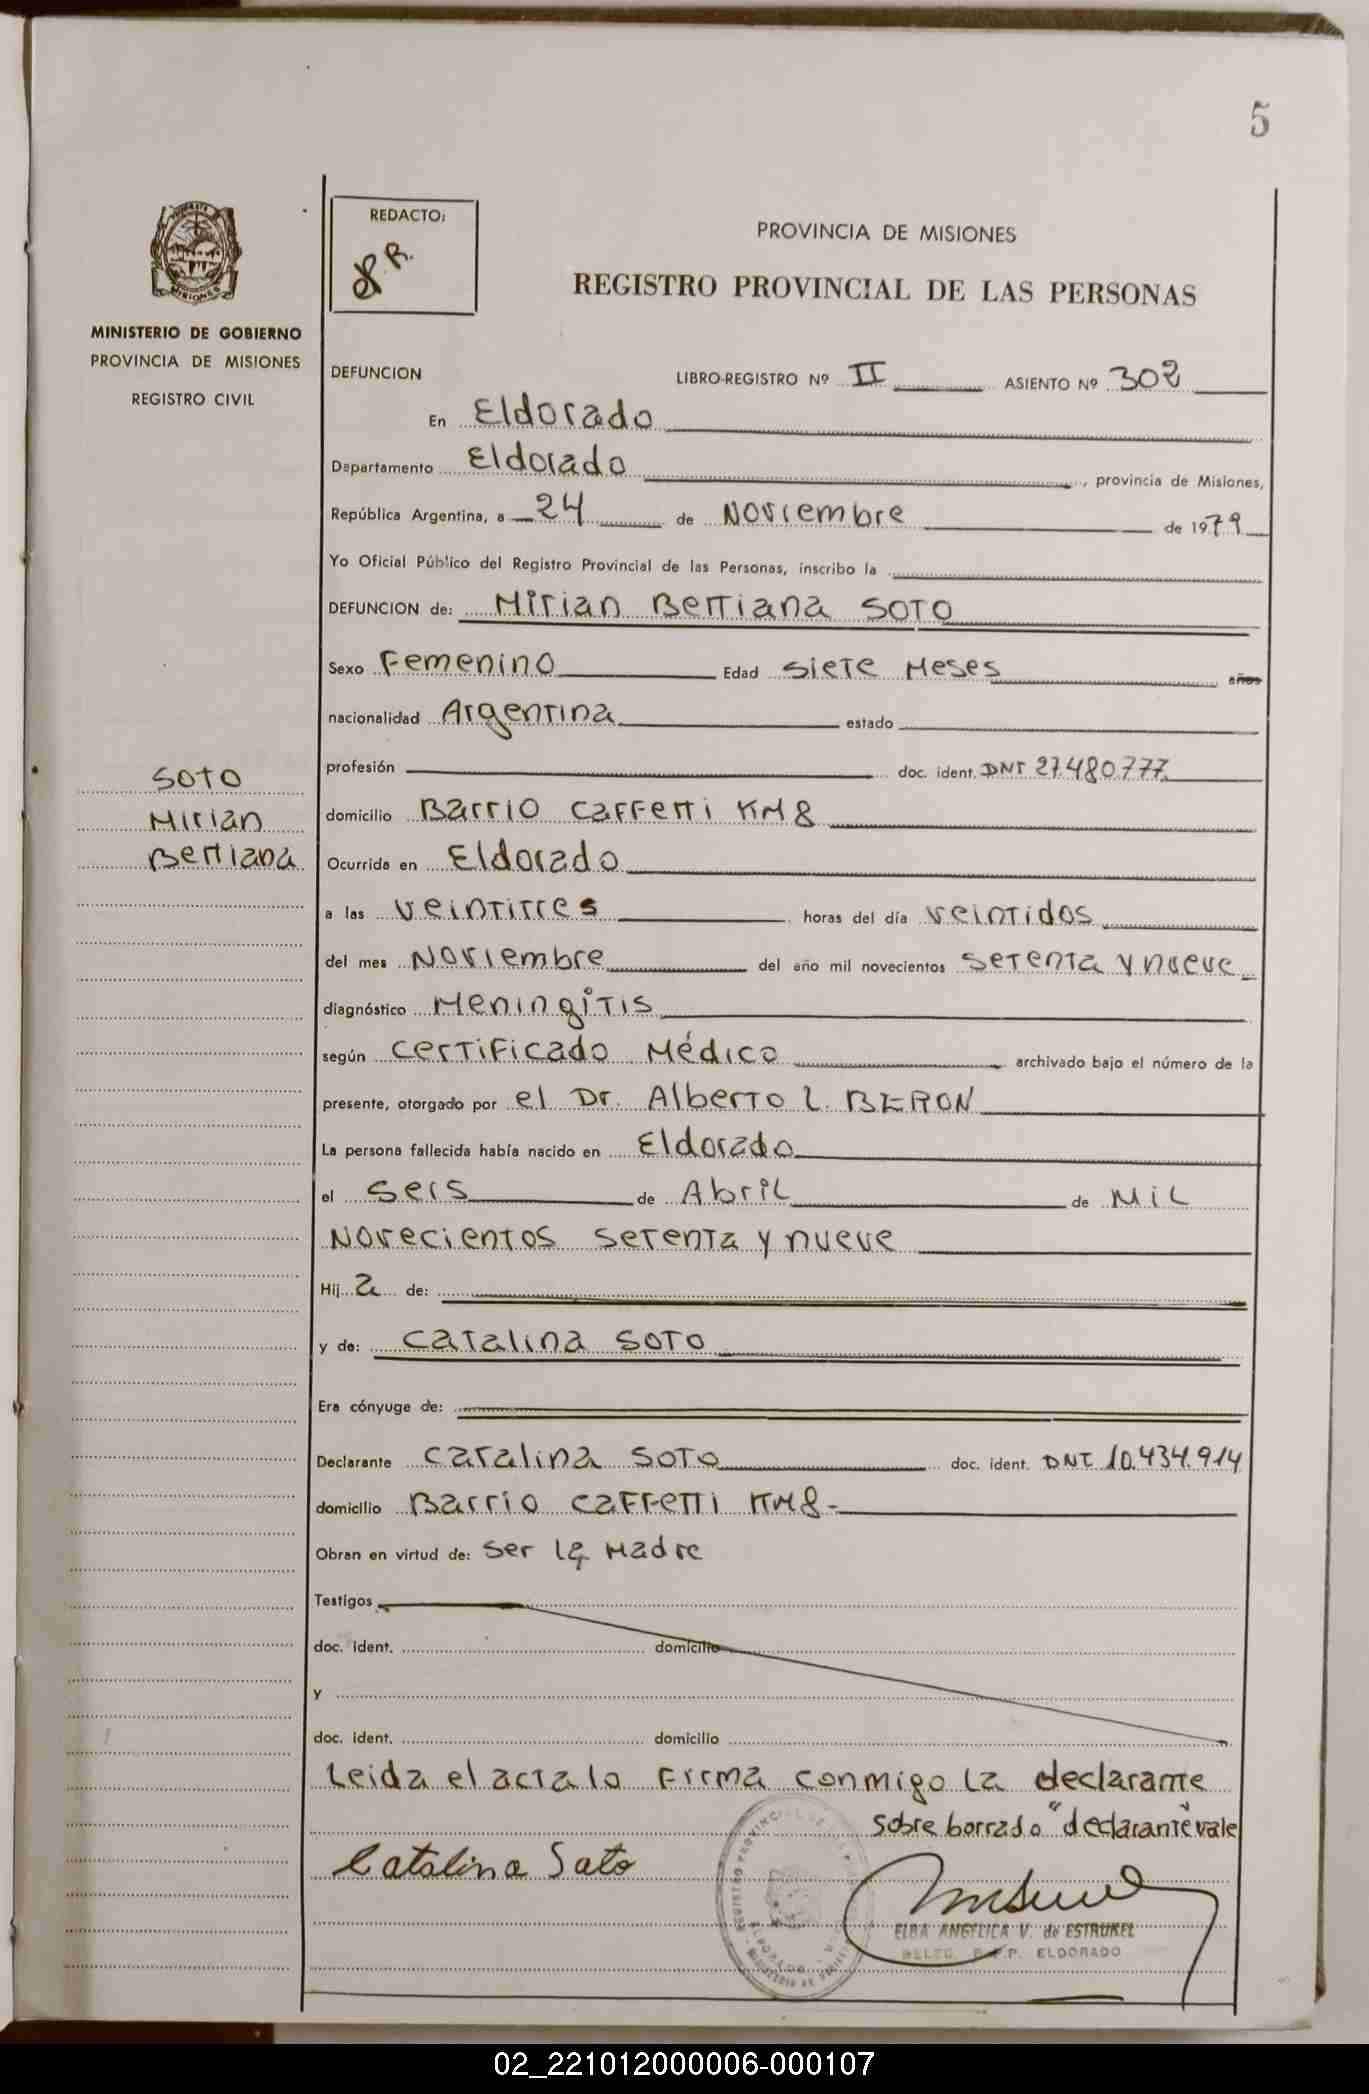 5
REDACTO:
PROVINCIA DE MISIONES
REGISTRO PROVINCIAL DE LAS PERSONAS
MINISTERIO DE GOBIERNO
PROVINCIA DE MISIONES
REGISTRO CIVIL
DEFUNCION LIBRO-REGISTRO Nº II ASIENTO Nº 302
En Eldorado
Departamento Eldorado, provincia de Misiones,
República Argentina, a 24 de Noviembre de 1979
Yo Oficial Público del Registro Provincial de las Personas, inscribo la
DEFUNCION de: Mirian Bettiana SOTO
Sexo Femenino Edad siete Meses años
nacionalidad Argentina estado
profesión doc. ident. DNI 27.480.777
SOTO
Mirian
Bettiana
domicilio Barrio Caffetti KM 8
Ocurrida en Eldorado
a las veintitres horas del día veintidos
del mes Noviembre del año mil novecientos setenta y nueve
diagnóstico Meningitis
según certificado Médico archivado bajo el número de la
presente, otorgado por el Dr. Alberto L. BERON
La persona fallecida había nacido en Eldorado
el seis de Abril de Mil
Novecientos setenta y nueve
Hij a de:
y de: Catalina SOTO
Era cónyuge de:
Declarante Catalina SOTO doc. ident. DNI 10.434.914
domicilio Barrio Caffetti KM8-
Obran en virtud de: ser la Madre
Testigos
doc. ident. domicilio
y
doc. ident. domicilio
Leida el acta lo firma conmigo la declarante
sobre borrado "declarante" vale
Catalina Soto
ELBA ANGELICA V. de ESTRUKEL
R.P.P. ELDORADO
02_221012000006-000107